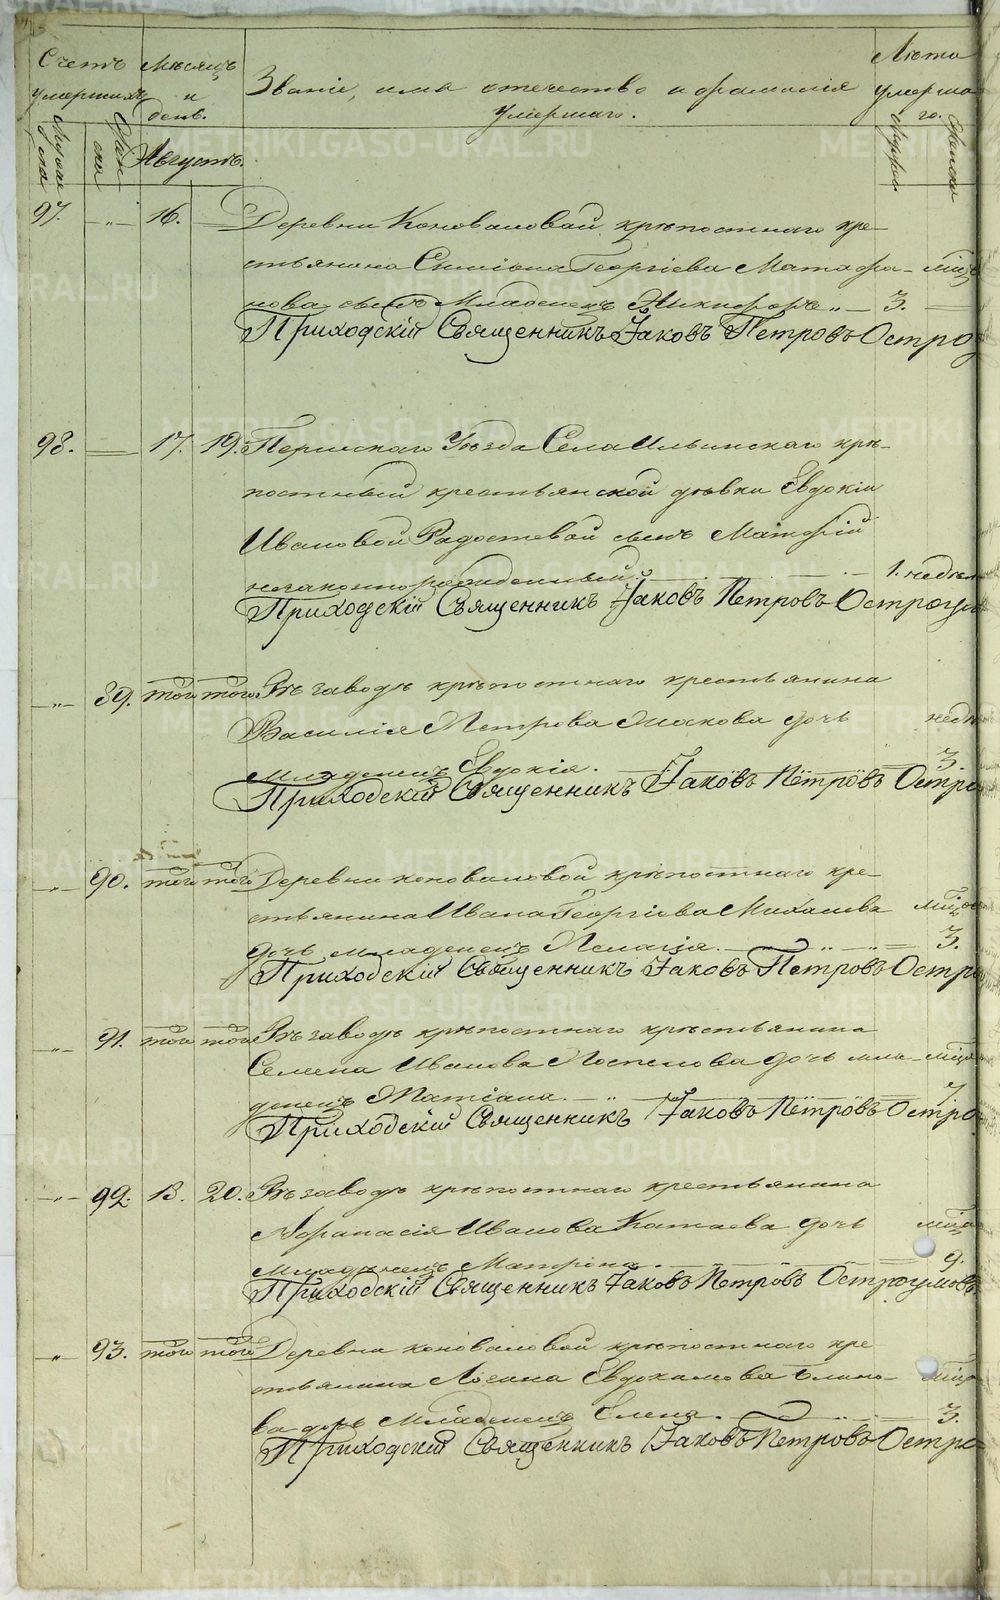 Счетъ умершихъ
Мѣсяцъ и день.
Званіе, имя отечество и фамилія умершаго.
Лѣта умершаго.
Августъ.
97. —„— 16. Деревни Коноваловой крѣпостнаго кре-
стьянина Георгіева
нова сынъ Младенецъ Никифоръ „ — 3.
Приходскій Священникъ Іаковъ Петровъ Остро
98. — 17. 19. Пермскаго Уѣзда Села Ильинскаго крѣ-
постный крестьянской дѣвки Евдокіи
Ивановой сынъ Матфій
незаконнорожденный. — 1. недѣл
Приходскій Священникъ Іаковъ Петровъ Остроум
—„— 89. того того Въ заводѣ крѣпостнаго крестьянина
Василія Петрова дочь недѣ
младенецъ Евдокія. 3.
Приходскій Священникъ Іаковъ Петровъ Остр
—„— 90. того того Деревни коноваловой крѣпостнаго кре-
стьянина Ивана Георгіева мѣс
дочь младенецъ Пелагія. 3.
Приходскій Священникъ Іаковъ Петровъ Остро
—„— 91. того того Въ заводѣ крѣпостнаго крестьянина
Семена Иванова Поспелова дочь мла- мѣся
денецъ Татіана. 7.
Приходскій Священникъ Іаковъ Петровъ Остро
—„— 92. 13. 20. Въ заводѣ крѣпостнаго крестьянина
Афанасія Иванова Катаева дочь мѣся
младенецъ Матрона. 9.
Приходскій Священникъ Іаковъ Петровъ Остроумовъ
—„— 93. того того Деревни коноваловой крѣпостнаго кре
стьянина Евдокимова Блино- мѣся
ва дочь младенецъ Елена. 3.
Приходскій Священникъ Іаковъ Петровъ Остро
METRIKI.GASO-URAL.RU